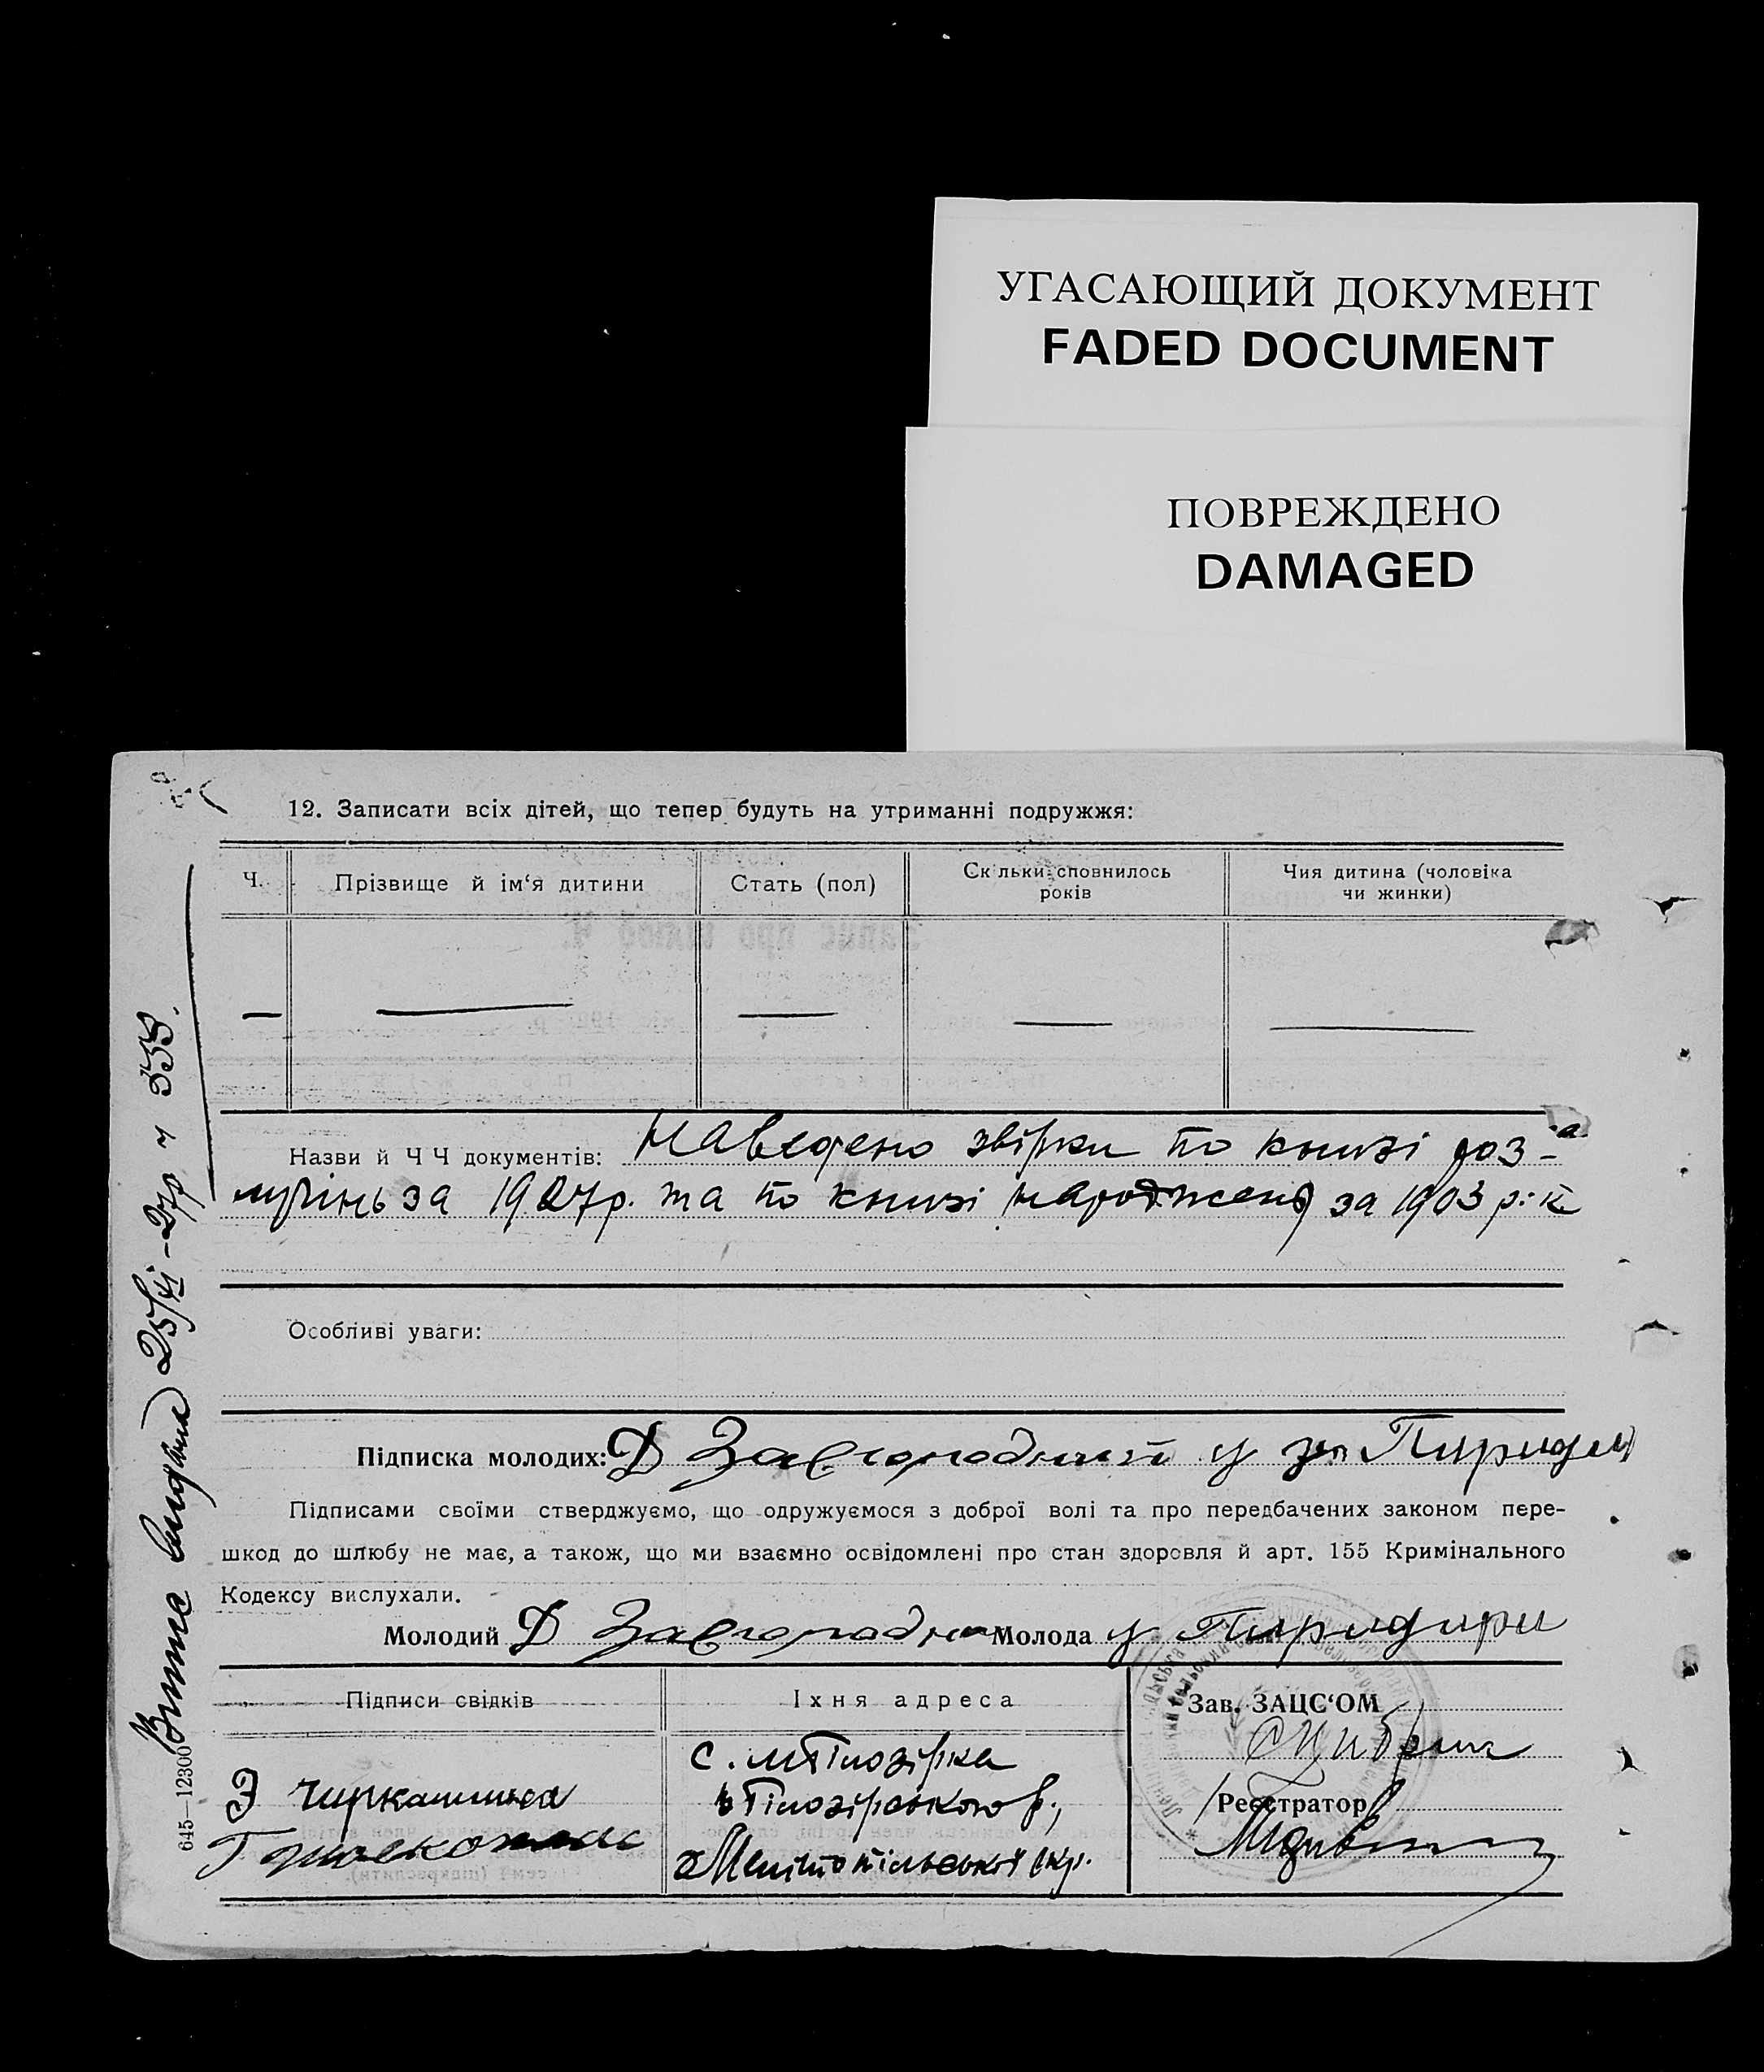 УГАСАЮЩИЙ ДОКУМЕНТ
FADED DOCUMENT
ПОВРЕЖДЕНО
DAMAGED
12. Записати всіх дітей, що тепер будуть на утриманні подружжя:
Ч. Прізвище й ім‘я дитини Стать (пол) Скільки сповнилось років Чия дитина (чоловіка чи жинки)
— — — — —
Назви й Ч Ч документів: Наведено звірки по книзі роз-
лучінь за 1927р. та по книзі народжень за 1903 р.
Особливі уваги:
Підписка молодих: Д Завгородний у
Підписами своїми стверджуємо, що одружуємося з доброї волі та про передбачених законом пере-
шкод до шлюбу не має, а також, що ми взаємно освідомлені про стан здоровля й арт. 155 Кримінального
Кодексу вислухали.
Молодий Д Завгородни Молода у
Підписи свідків Їхня адреса Зав. ЗАЦС‘ОМ
с.
Реєстратор
Мелітопільської окр.
645—12300
Витяг видана 25/XI-27р ч 558.